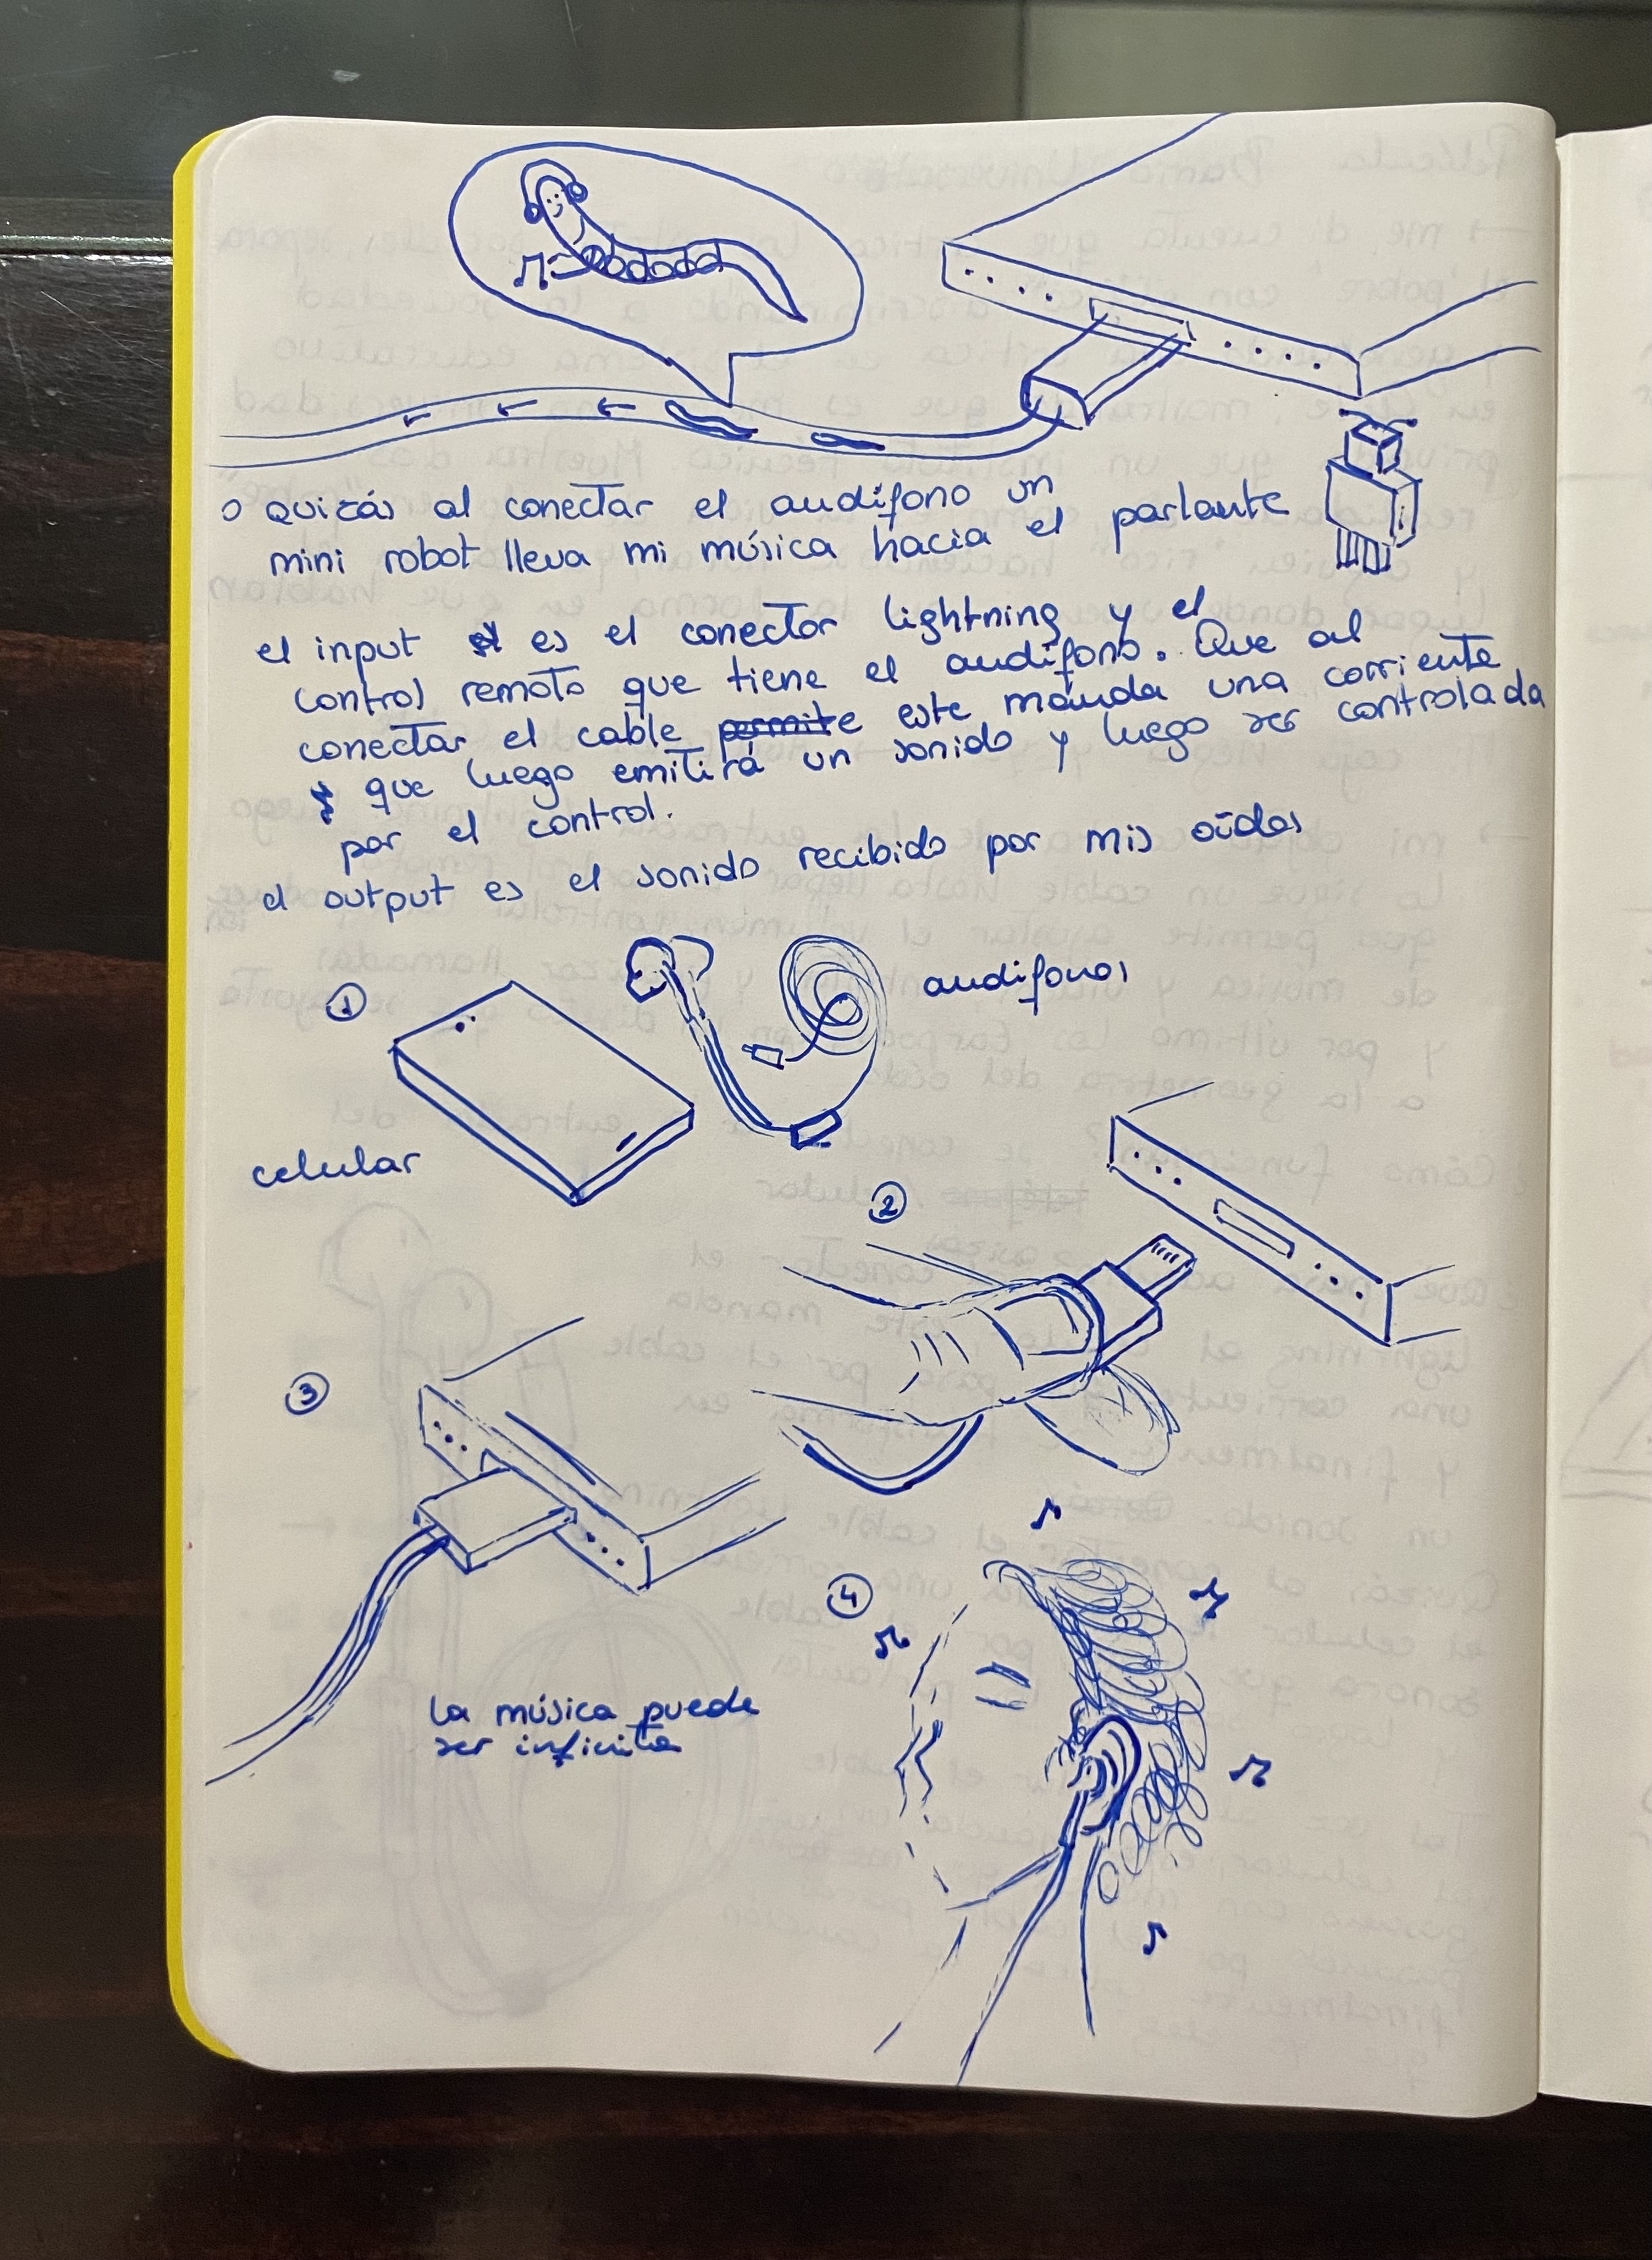 o quizás al conectar el audífono un
mini robot lleva mi música hacia el parlante
el input es el conector lightning y el
control remoto que tiene el audífono. Que al
conectar el cable permite este manda una corriente
y que luego emitirá un sonido y luego ser controlada
por el control.
el output es el sonido recibido por mis oídos
①
audífonos
celular
②
③
④
la música puede
ser infinita